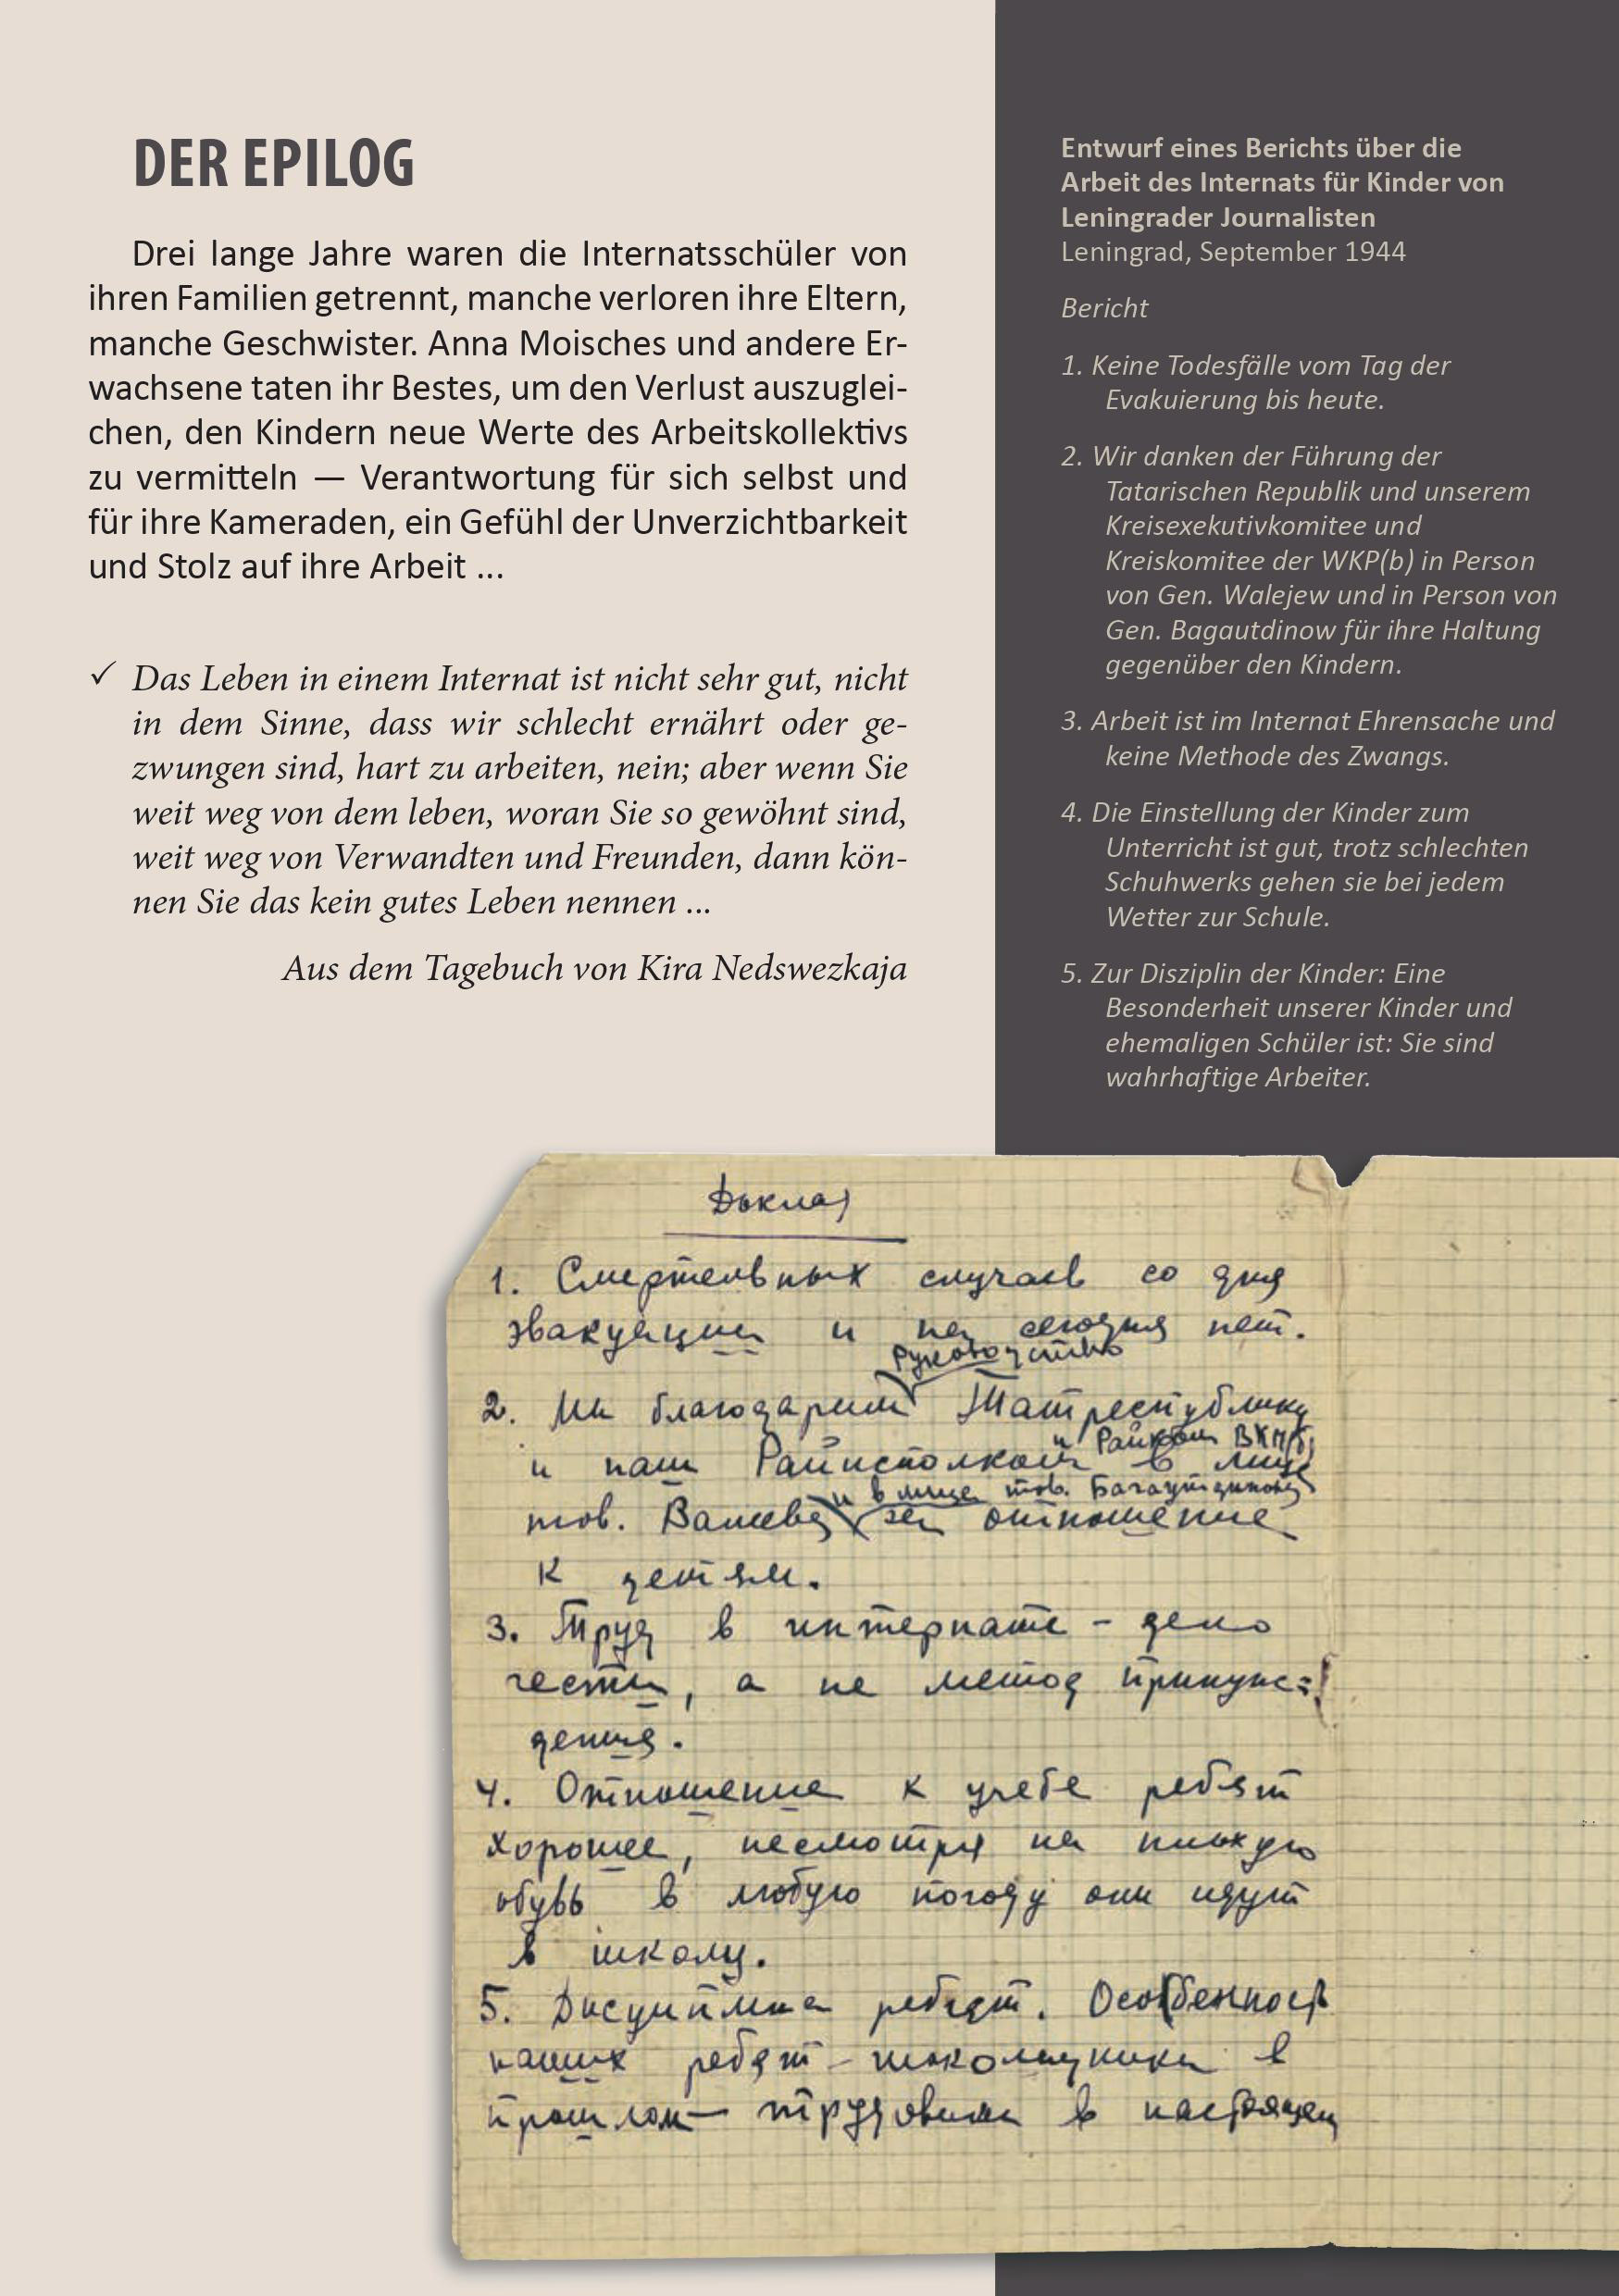 DER EPILOG
Drei lange Jahre waren die Internatsschüler von
ihren Familien getrennt, manche verloren ihre Eltern,
manche Geschwister. Anna Moisches und andere Er-
wachsene taten ihr Bestes, um den Verlust auszuglei-
chen, den Kindern neue Werte des Arbeitskollektivs
zu vermitteln — Verantwortung für sich selbst und
für ihre Kameraden, ein Gefühl der Unverzichtbarkeit
und Stolz auf ihre Arbeit ...
✓ Das Leben in einem Internat ist nicht sehr gut, nicht
in dem Sinne, dass wir schlecht ernährt oder ge-
zwungen sind, hart zu arbeiten, nein; aber wenn Sie
weit weg von dem leben, woran Sie so gewöhnt sind,
weit weg von Verwandten und Freunden, dann kön-
nen Sie das kein gutes Leben nennen ...
Aus dem Tagebuch von Kira Nedswezkaja
Entwurf eines Berichts über die
Arbeit des Internats für Kinder von
Leningrader Journalisten
Leningrad, September 1944
Bericht
1. Keine Todesfälle vom Tag der
Evakuierung bis heute.
2. Wir danken der Führung der
Tatarischen Republik und unserem
Kreisexekutivkomitee und
Kreiskomitee der WKP(b) in Person
von Gen. Walejew und in Person von
Gen. Bagautdinow für ihre Haltung
gegenüber den Kindern.
3. Arbeit ist im Internat Ehrensache und
keine Methode des Zwangs.
4. Die Einstellung der Kinder zum
Unterricht ist gut, trotz schlechten
Schuhwerks gehen sie bei jedem
Wetter zur Schule.
5. Zur Disziplin der Kinder: Eine
Besonderheit unserer Kinder und
ehemaligen Schüler ist: Sie sind
wahrhaftige Arbeiter.
Доклад
1. Смертельных случаев со дня
эвакуации и на сегодня нет.
руководство
2. Мы благодарим Татреспублику
и Райком ВКПб
и наш Райисполком в лице
и в лице тов. Багаутдинова
тов. Валеева за отношение
к детям.
3. Труд в интернате - дело
чести, а не метод принуж=
дения.
4. Отношение к учебе ребят
хорошее, несмотря на плохую
обувь в любую погоду они идут
в школу.
5. Дисциплина ребят. Особенность
наших ребят - школьники в
прошлом — трудовики в настоящем